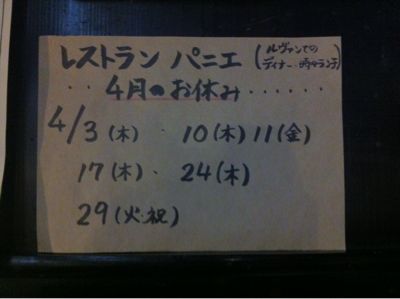 レストラン パニエ (ルヴァンでの
ディナー・時々ランチ)
・・4月のお休み・・・・・・
4/3(木)・10(木)11(金)
17(木)・24(木)
29(火・祝)